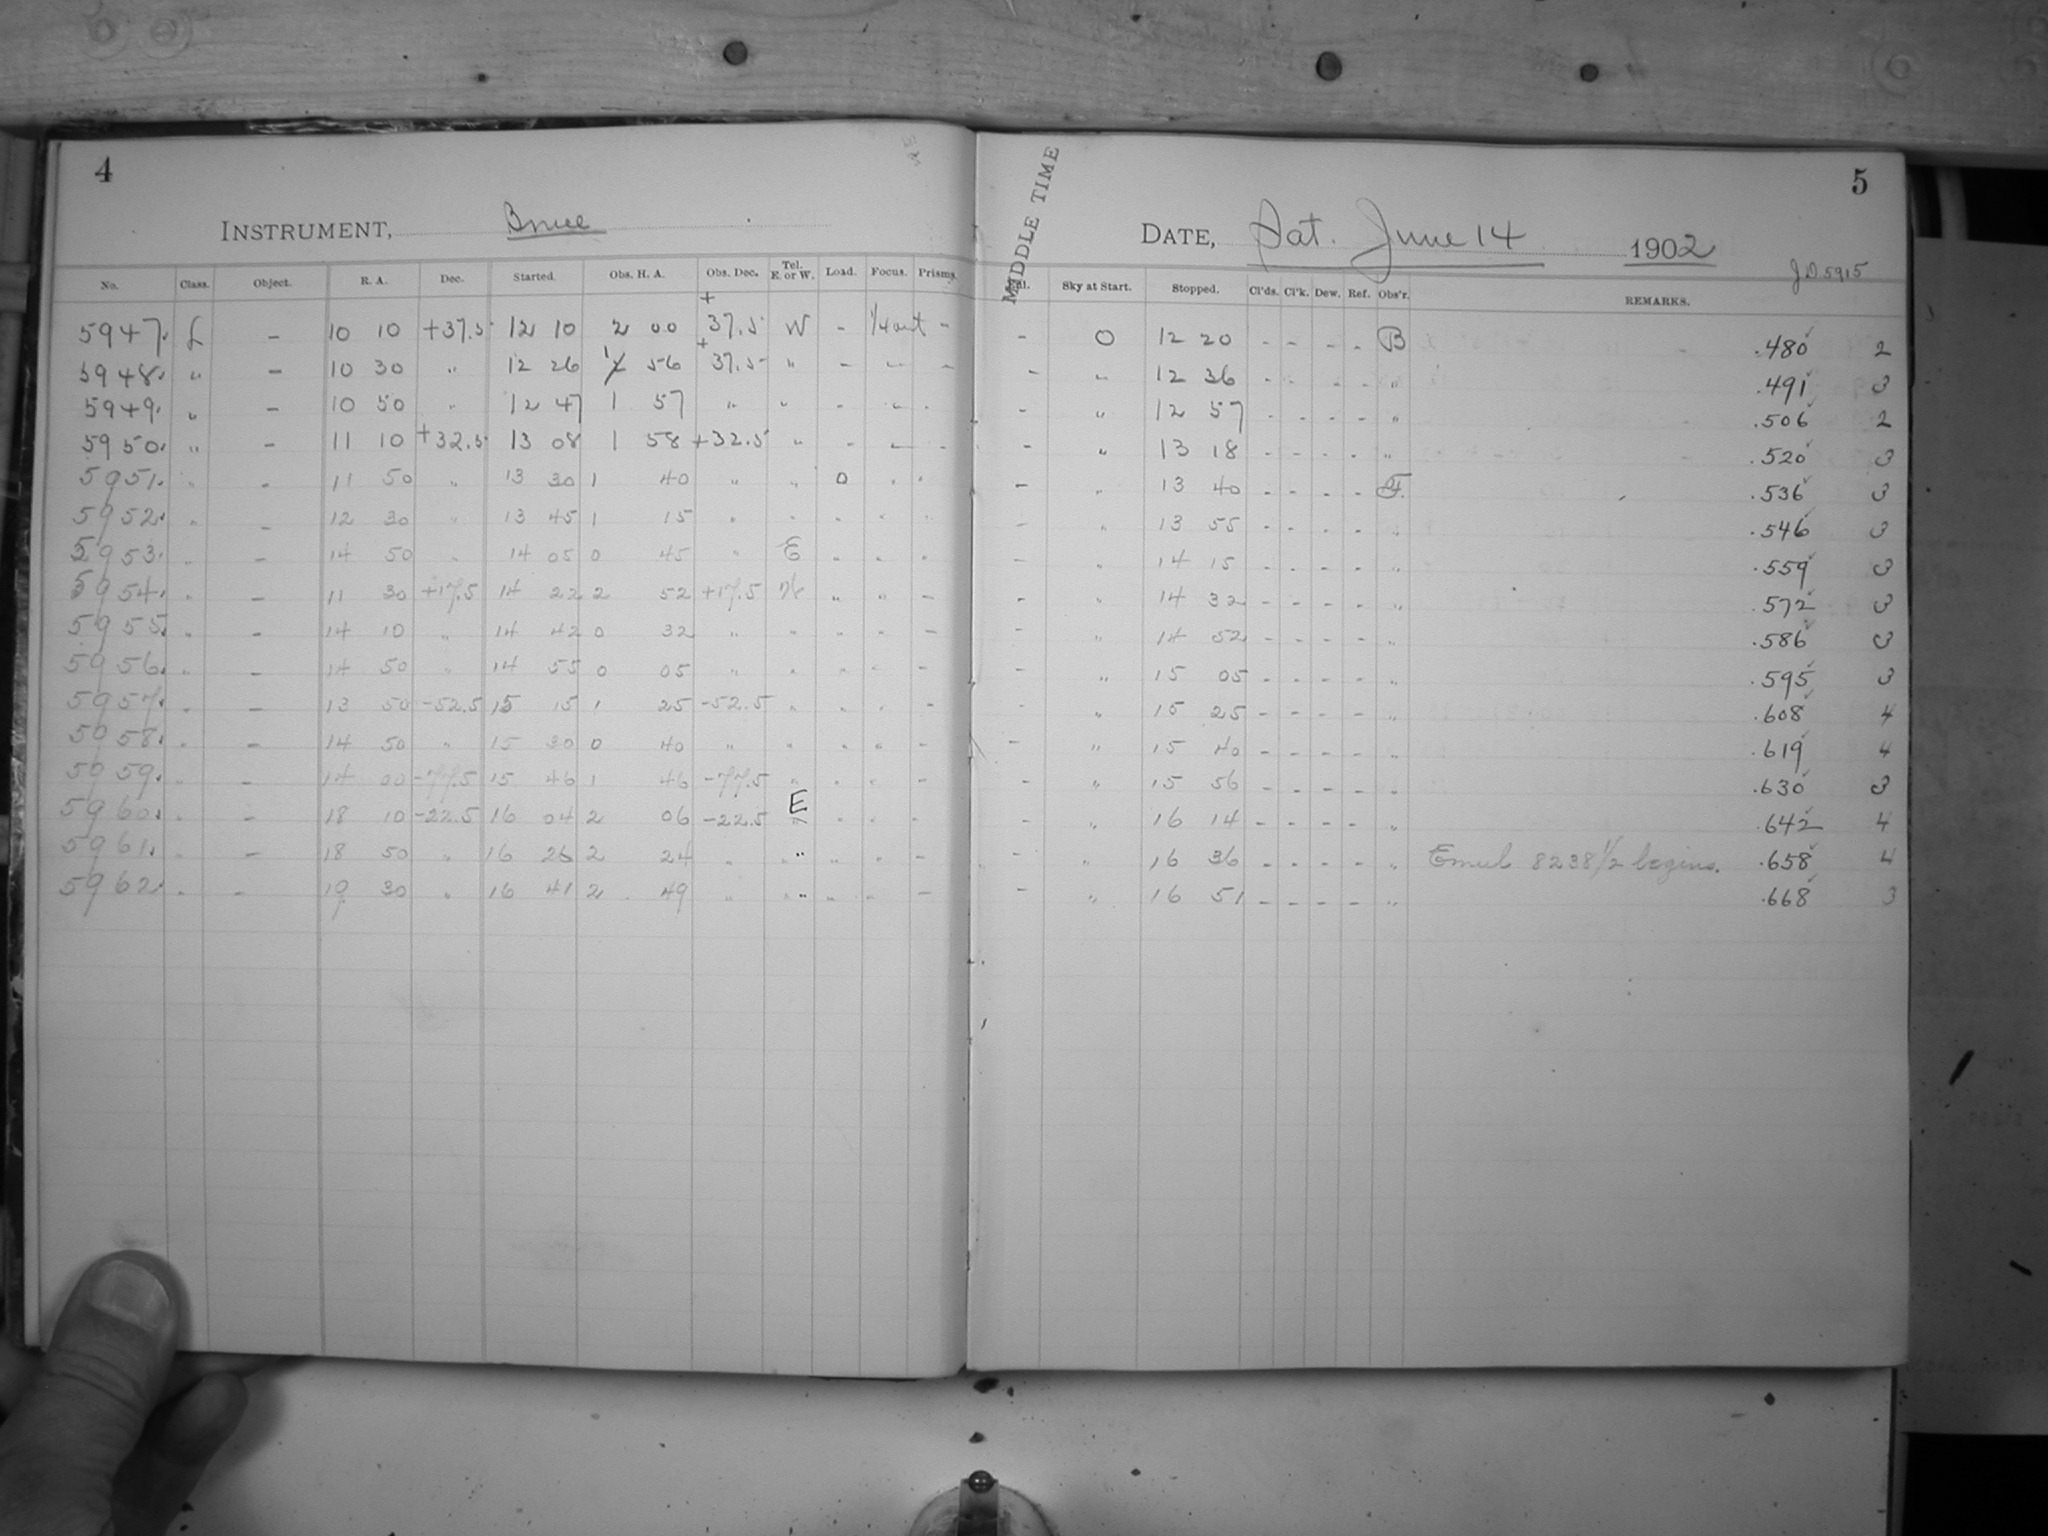 4
INSTRUMENT, Bruce
No. Class. Object. R. A. Dec. Started. Obs. H. A. Obs. Dec. Tel. E. or W. Load. Focus. Prisms.
5947. L - 10 10 +37.5 12 10 2 00 +37.5 W - 1/4 out -
5948. " - 10 30 " 12 26 1 56 +37.5 " - - -
5949. " - 10 50 " 12 47 1 57 " " - " -
5950. " - 11 10 +32.5 13 08 1 58 +32.5 " - - -
5951. " - 11 50 " 13 30 1 40 " " 0 " "
5952. " - 12 30 " 13 45 1 15 " " " " "
5953. " - 14 50 " 14 05 0 45 " E " " "
5954. " - 11 30 +17.5 14 22 2 52 +17.5 W " " -
5955. " - 14 10 " 14 42 0 32 " " " " -
5956. " - 14 50 " 14 55 0 05 " " " " -
5957. " - 13 50 -52.5 15 15 1 25 -52.5 " " " -
5958. " - 14 50 " 15 30 0 40 " " " " -
5959. " - 14 00 -77.5 15 46 1 46 -77.5 " " " -
5960. " - 18 10 -22.5 16 04 2 06 -22.5 E " " -
5961. " - 18 50 " 16 26 2 24 " " " " -
5962. " - 19 30 " 16 41 2 49 " " " - -
5
MIDDLE TIME
DATE, Sat. June 14 1902
JD 5915
Sky at Start. Stopped. Cl'ds. Cl'k. Dew. Ref. Obs'r. REMARKS.
- 0 12 20 - - - - B .480 2
- " 12 36 - - - - " .491 3
- " 12 57 - - - - " .506 2
- " 13 18 - - - - " .520 3
- " 13 40 - - - - F. .536 3
- " 13 55 - - - - " .546 3
- " 14 15 - - - - " .559 3
- " 14 32 - - - - " .572 3
- " 14 52 - - - - " .586 3
- " 15 05 - - - - " .595 3
- " 15 25 - - - - " .608 4
- " 15 40 - - - - " .619 4
- " 15 56 - - - - " .630 3
- " 16 14 - - - - " .642 4
- " 16 36 - - - - " Emul 8238 1/2 begins. .658 4
- " 16 51 - - - - " .668 3